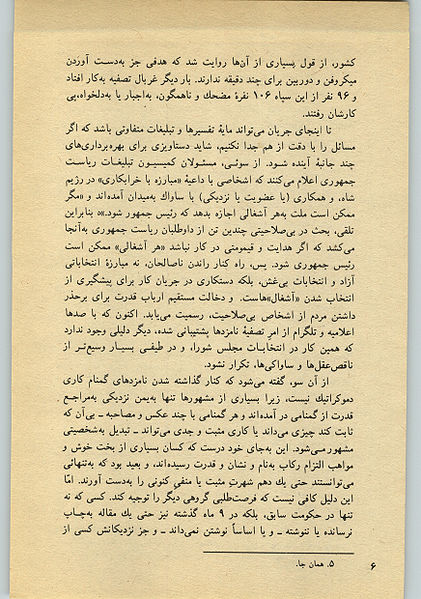 کشور، از قول بسیاری از آن‌ها روایت شد که هدفی جز به‌دست آوردن
میکروفن و دوربین برای چند دقیقه ندارند. بار دیگر غربال تصفیه به‌کار افتاد
و ۹۶ نفر از این سپاه ۱۰۶ نفرهٔ مضحك و ناهمگون، به‌اجبار یا به‌دلخواه، پی
کارشان رفتند.
تا اینجای جریان می‌تواند مایهٔ تفسیرها و تبلیغات متفاوتی باشد که اگر
مسائل را با دقت از هم جدا نکنیم، شاید دستاویزی برای بهره‌برداری‌های
چند جانبهٔ آینده شود. از سوئی، مسئولان کمیسیون تبلیغات ریاست
جمهوری اعلام می‌کنند که اشخاصی با داعیهٔ «مبارزه با خرابکاری» در رژیم
شاه، و همکاری (با عضویت یا نزدیکی) با ساواك به‌میدان آمده‌اند و «مگر
ممکن است ملت به‌هر آشغالی اجازه بدهد که رئیس جمهور شود.»۵ بنابراین
تلقی، بحث در بی‌صلاحیتی چندین تن از داوطلبان ریاست جمهوری به‌آنجا
می‌کشد که اگر هدایت و قیمومتی در کار نباشد «هر آشغالی» ممکن است
رئیس جمهوری شود. پس، راه کنار راندن ناصالحان، نه مبارزهٔ انتخاباتی
آزاد و انتخابات بی‌غش، بلکه دستکاری در جریان کار برای پیشگیری از
انتخاب شدن «آشغال»هاست. و دخالت مستقیم ارباب قدرت برای برحذر
داشتن مردم از اشخاص بی‌صلاحیت، رسمیت می‌یابد. اکنون که با صدها
اعلامیه و تلگرام از امر تصفیهٔ نامزدها پشتیبانی شده، دیگر دلیلی وجود ندارد
که همین کار در انتخابات مجلس شورا، و در طیفی بسیار وسیع‌تر از
ناقص‌عقل‌ها و ساواکی‌ها، تکرار نشود.
از آن سو، گفته می‌شود که کنار گذاشته شدن نامزدهای گمنام کاری
دموکراتیك نیست، زیرا بسیاری از مشهورها تنها به‌یمن نزدیکی به‌مراجع
قدرت از گمنامی در آمده‌اند و هر گمنامی با چند عکس و مصاحبه ــ بی‌آن که
ثابت کند چیزی می‌داند یا کاری مثبت و جدی می‌تواند ــ تبدیل به‌شخصیتی
مشهور می‌شود. این به‌جای خود درست که کسان بسیاری از بخت خوش و
مواهب التزام رکاب به‌نام و نشان و قدرت رسیده‌اند، و بعید بود که به‌تنهائی
می‌توانستند حتی یك دهم شهرتِ مثبت یا منفیِ کنونی را به‌دست آورند. امّا
این دلیل کافی نیست که فرصت‌طلبی گروهی دیگر را توجیه کند. کسی که نه
تنها در حکومت سابق، بلکه در ۹ ماه گذشته نیز حتی یك مقاله به‌چاپ
نرسانده یا ننوشته ــ و یا اساساً نوشتن نمی‌داند ــ و جز نزدیکانش کسی از
۵. همان جا.
۶